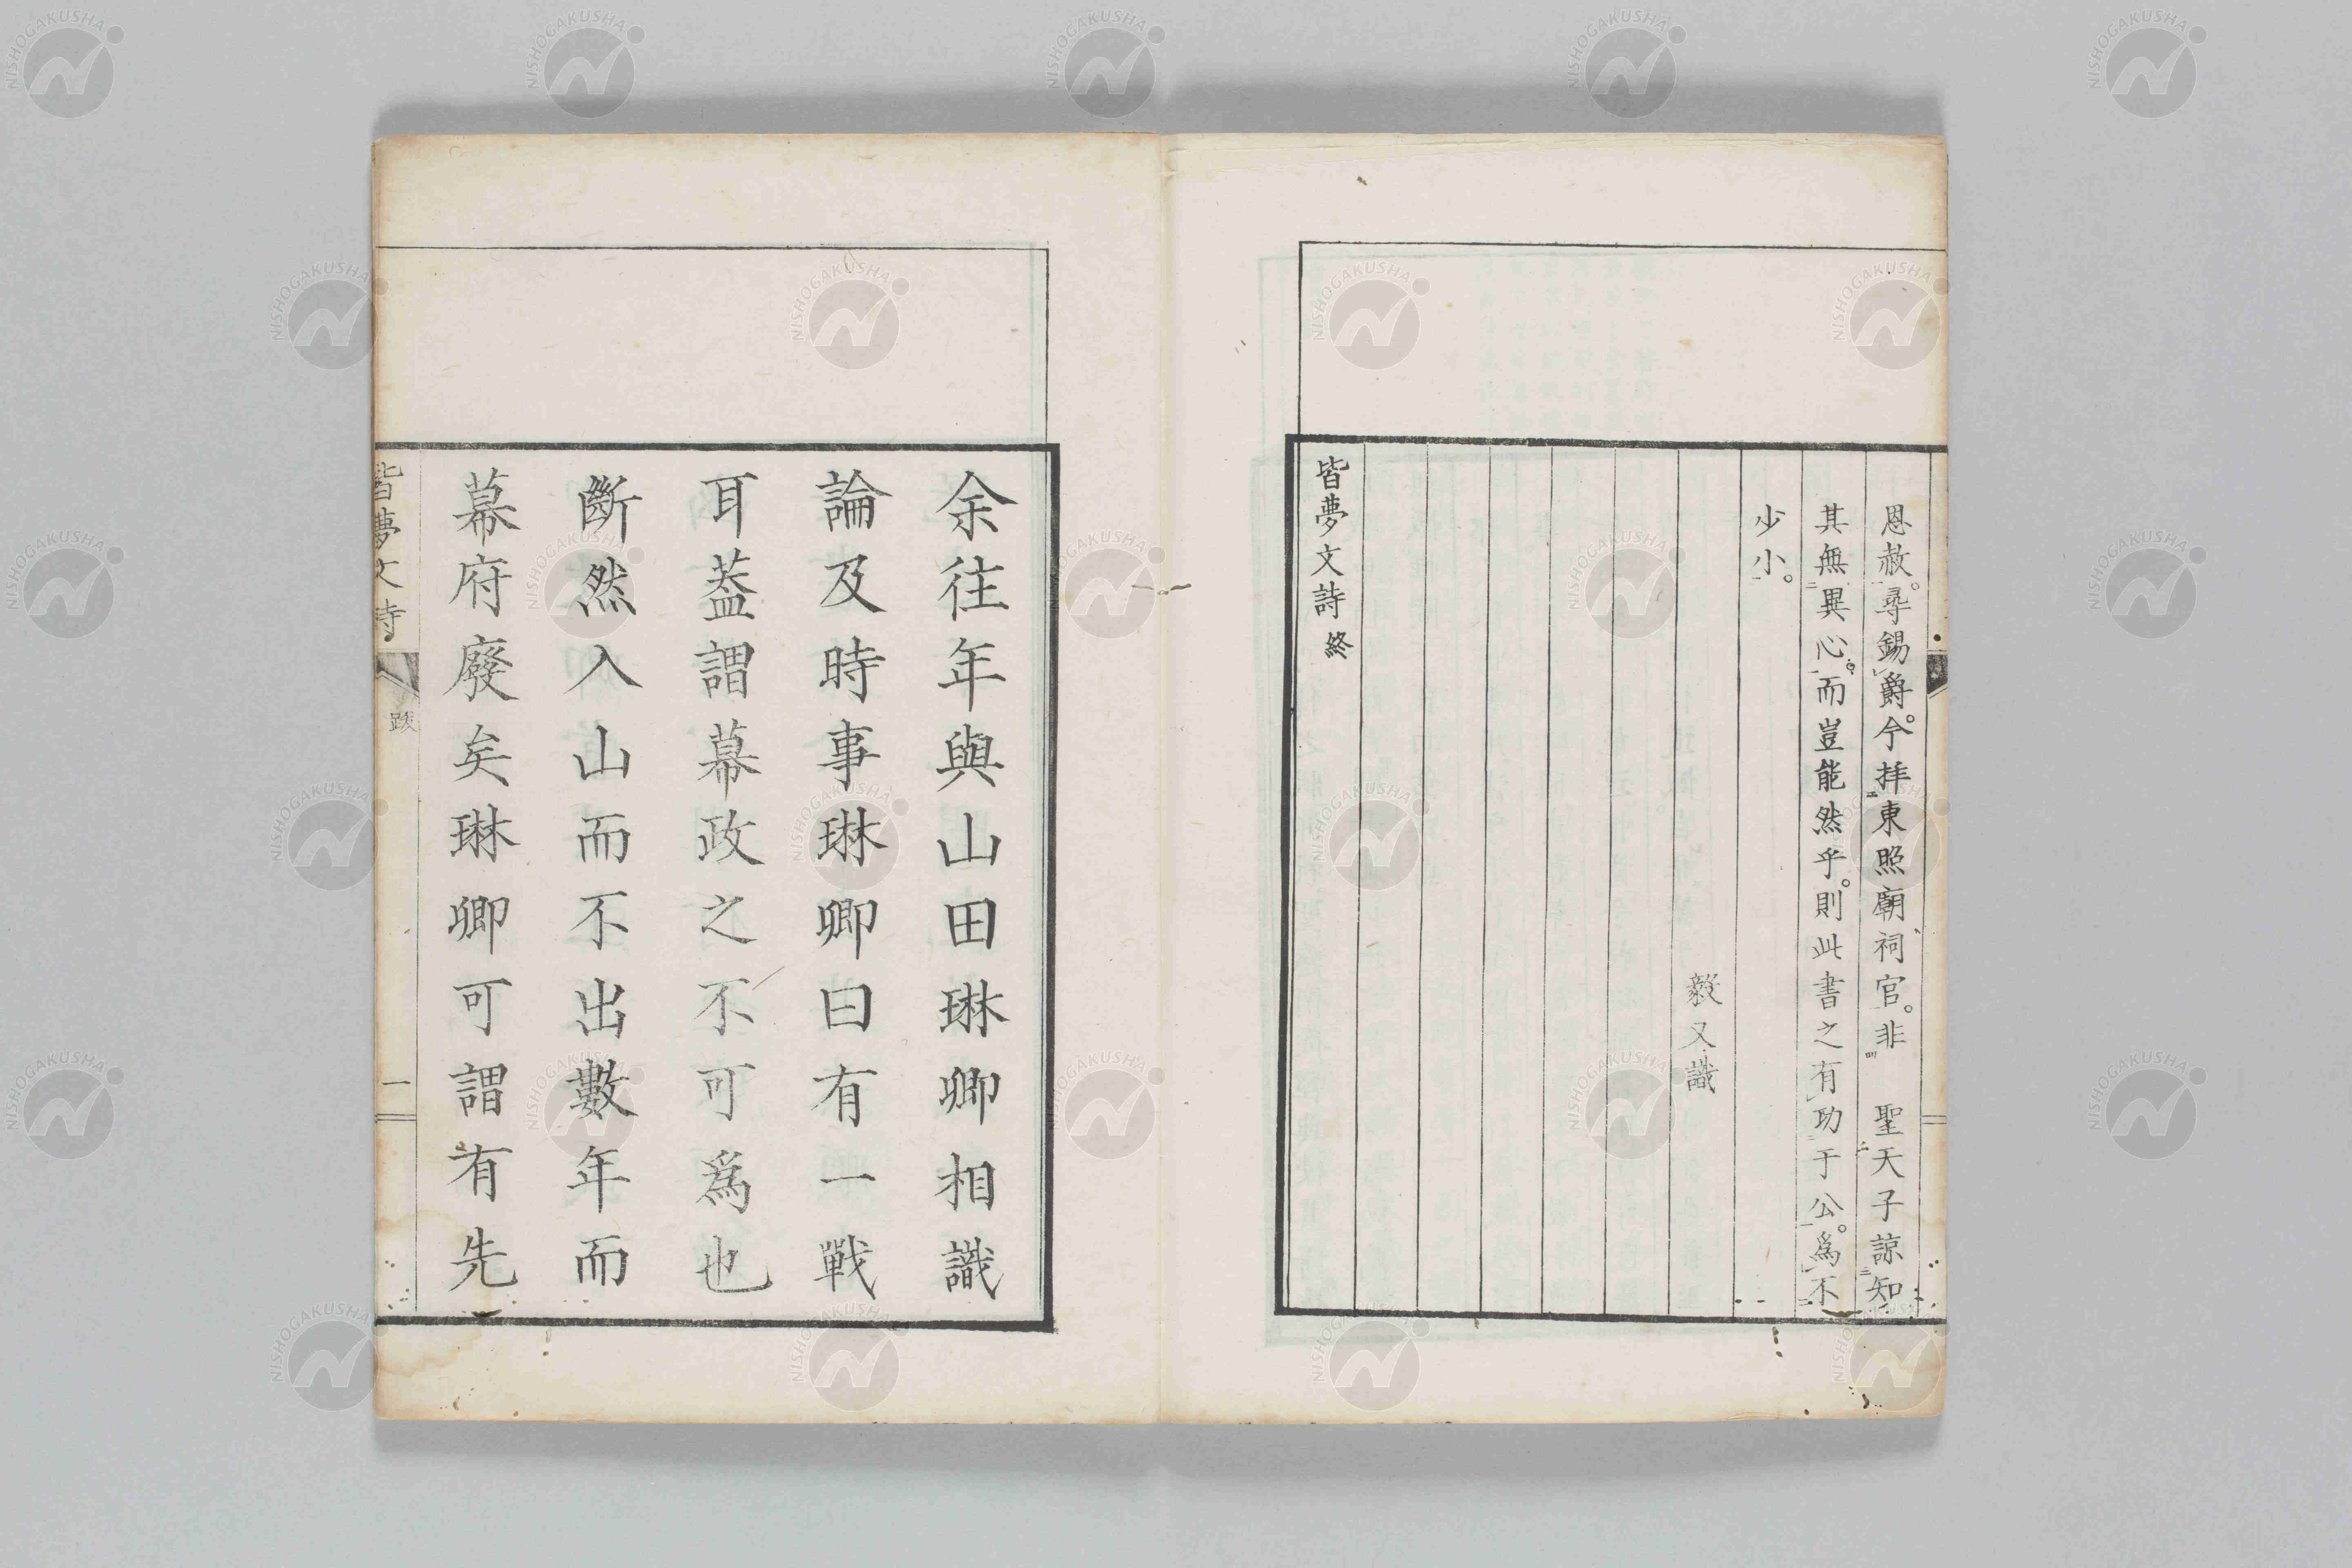 恩赦。尋錫爵。今拝東照廟祠官。非　聖天子諒知
其無異心。而豈能然乎。則此書之有功于公。為不
少小。
毅又識
皆夢文詩 終
余往年與山田琳卿相識
論及時事琳卿曰有一戦
耳葢謂幕政之不可為也
斷然入山而不出數年而
幕府廢矣琳卿可謂有先
皆夢文詩
跋
一
NISHOGAKUSHA